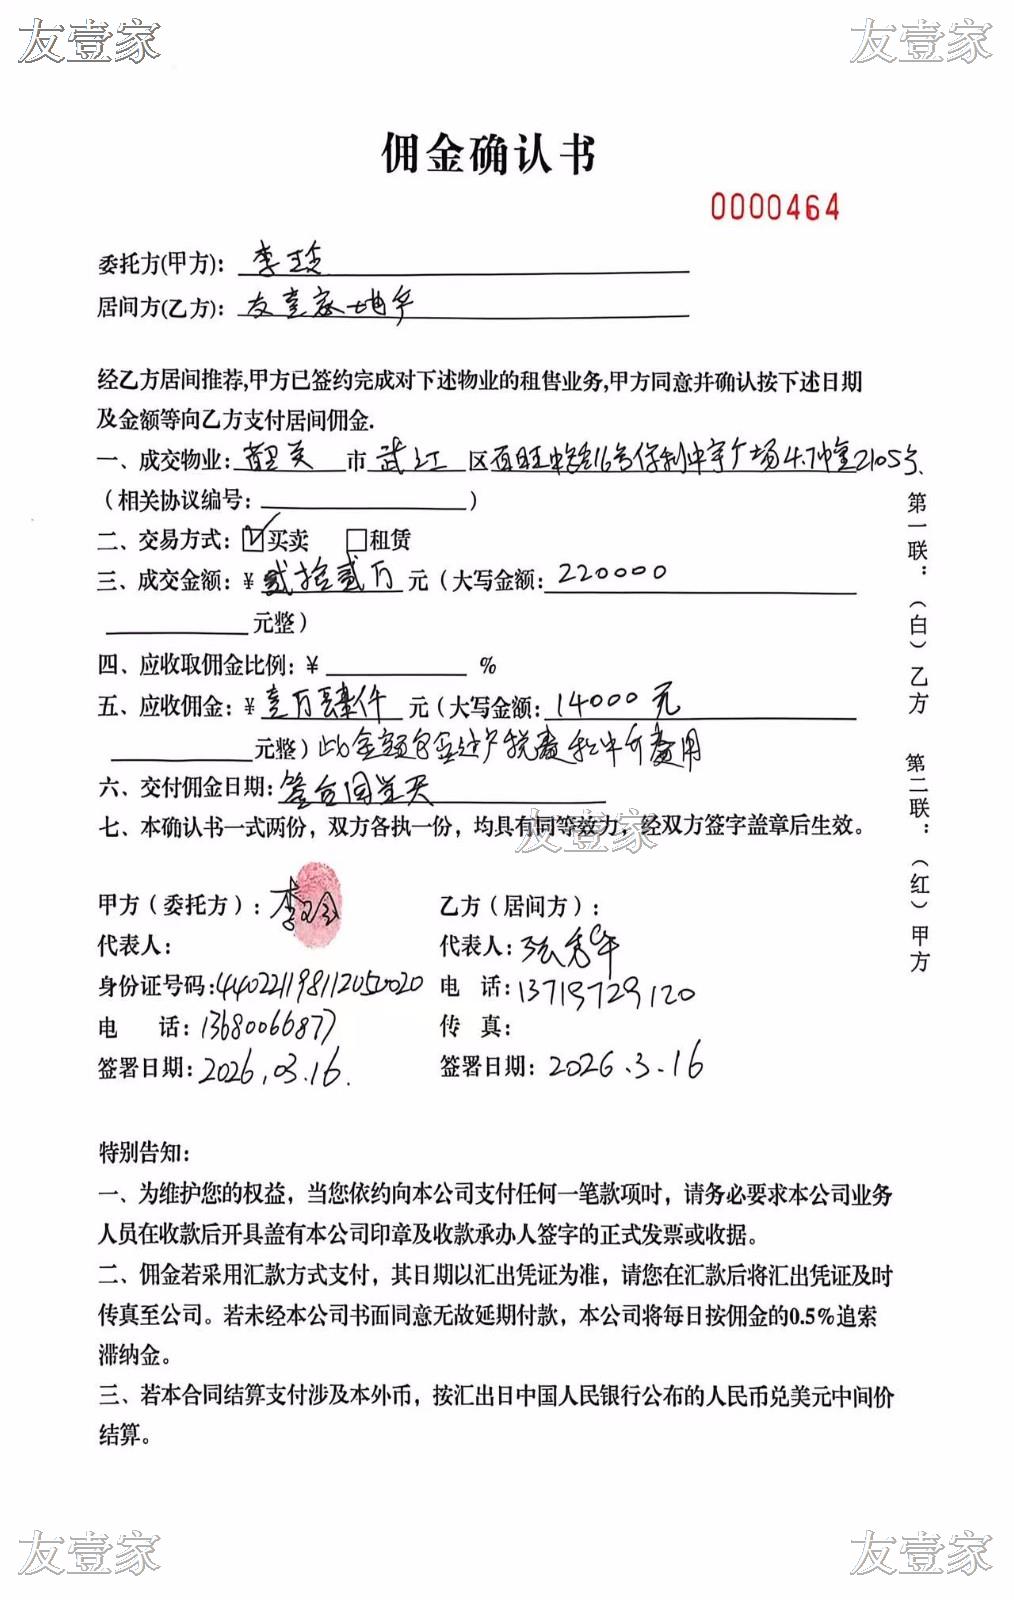 友壹家
友壹家
佣金确认书
0000464
委托方(甲方)： 李玲
居间方(乙方)： 友壹家地产
经乙方居间推荐,甲方已签约完成对下述物业的租售业务,甲方同意并确认按下述日期
及金额等向乙方支付居间佣金.
一、成交物业： 韶关 市 武江 区 百旺中路16号保利中宇广场4.7幢2105号.
（相关协议编号： ）
二、交易方式： ☑买卖 □租赁
三、成交金额：￥ 贰拾贰万 元（大写金额: 220000
元整）
四、应收取佣金比例：￥ %
五、应收佣金：￥ 壹万肆仟 元（大写金额: 14000元
元整）此金额包含过户税费和中介费用
六、交付佣金日期: 签合同当天
七、本确认书一式两份，双方各执一份，均具有同等效力，经双方签字盖章后生效。
友壹家
第一联：（白）乙方 第二联：（红）甲方
甲方（委托方）: 李玲
乙方（居间方）:
代表人:
代表人:
身份证号码:440221198112050020
电 话:13719729120
电 话:13680066877
传 真:
签署日期:2026.03.16.
签署日期: 2026.3.16
特别告知:
一、为维护您的权益，当您依约向本公司支付任何一笔款项时，请务必要求本公司业务
人员在收款后开具盖有本公司印章及收款承办人签字的正式发票或收据。
二、佣金若采用汇款方式支付，其日期以汇出凭证为准，请您在汇款后将汇出凭证及时
传真至公司。若未经本公司书面同意无故延期付款，本公司将每日按佣金的0.5%追索
滞纳金。
三、若本合同结算支付涉及本外币，按汇出日中国人民银行公布的人民币兑美元中间价
结算。
友壹家
友壹家